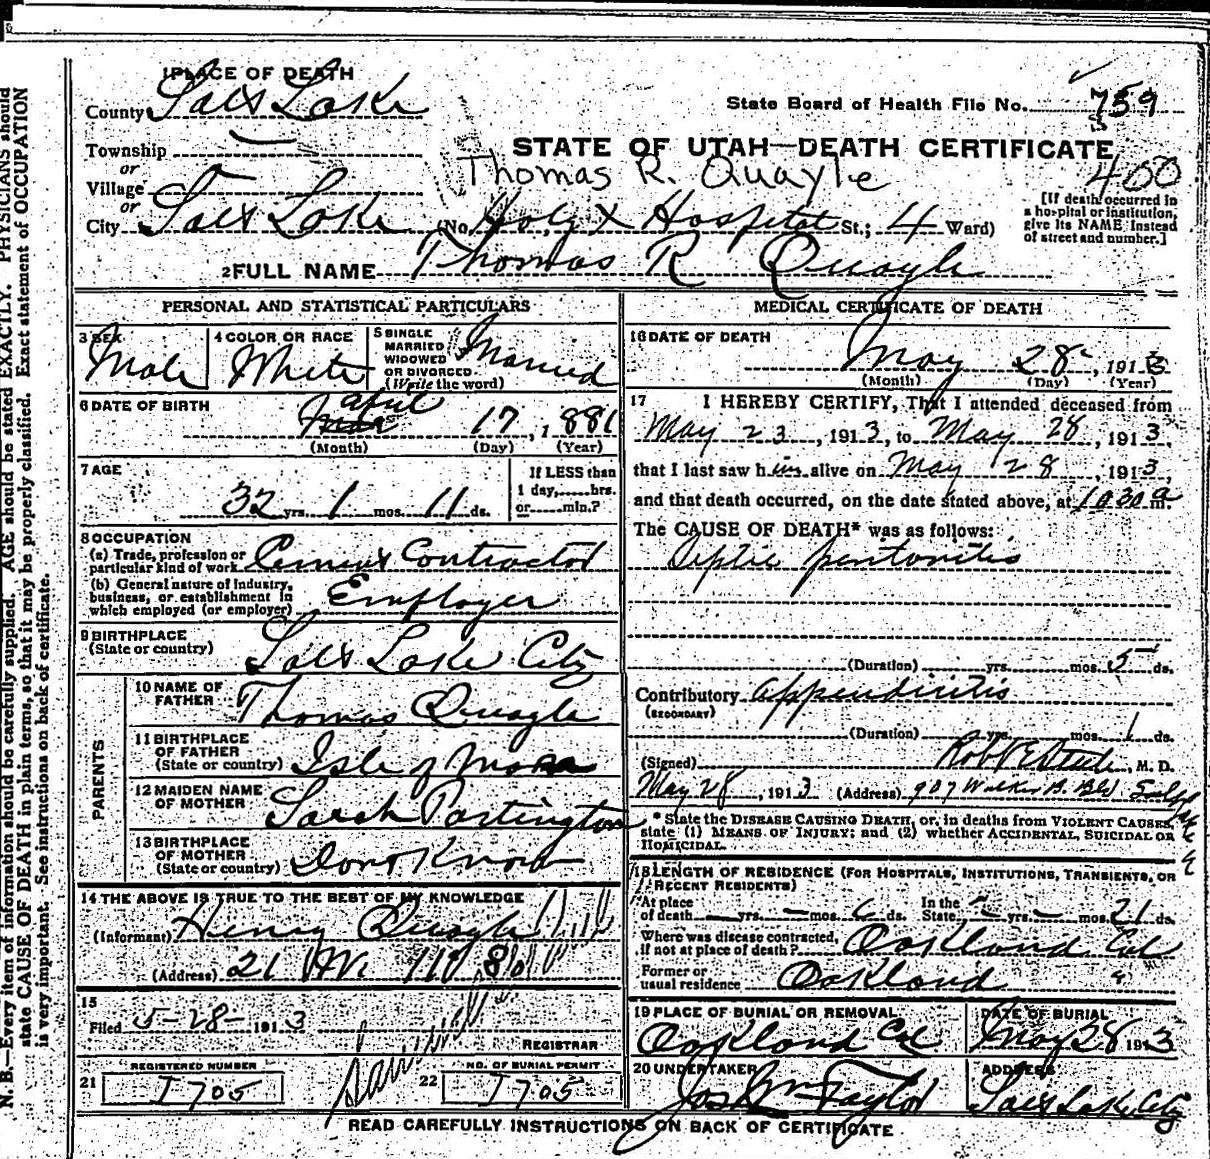 1 PLACE OF DEATH
County Salt Lake
State Board of Health File No. 759
Township
or
Village
or
City Salt Lake
STATE OF UTAH—DEATH CERTIFICATE
Thomas R. Quayle
400
(No. Holy X Hospital St.; 4 Ward)
[If death occurred in
a hospital or institution,
give its NAME instead
of street and number.]
2 FULL NAME Thomas R Quayle
PERSONAL AND STATISTICAL PARTICULARS
3 SEX
Male
4 COLOR OR RACE
White
5 SINGLE
MARRIED
WIDOWED
OR DIVORCED
(Write the word)
Married
6 DATE OF BIRTH
April 17, 1881
(Month) (Day) (Year)
7 AGE
32 yrs. 1 mos. 11 ds.
If LESS than
1 day,......hrs.
or......min.?
8 OCCUPATION
(a) Trade, profession or
particular kind of work Cement Contractor
(b) General nature of industry,
business, or establishment in
which employed (or employer) Employer
9 BIRTHPLACE
(State or country) Salt Lake City
PARENTS
10 NAME OF
FATHER Thomas Quayle
11 BIRTHPLACE
OF FATHER
(State or country) Isle of Man
12 MAIDEN NAME
OF MOTHER Sarah Partington
13 BIRTHPLACE
OF MOTHER
(State or country) Dont Know
14 THE ABOVE IS TRUE TO THE BEST OF MY KNOWLEDGE
(Informant) Henry Quayle
(Address) 21
15
Filed 5-28- 1913
REGISTRAR
REGISTERED NUMBER
21 I705
NO. OF BURIAL PERMIT
22 I705
MEDICAL CERTIFICATE OF DEATH
16 DATE OF DEATH
May 28, 1913
(Month) (Day) (Year)
17 I HEREBY CERTIFY, That I attended deceased from
May 23, 1913, to May 28, 1913,
that I last saw him alive on May 28, 1913,
and that death occurred, on the date stated above, at 1030 a m.
The CAUSE OF DEATH* was as follows:
Septic peritonitis
(Duration) yrs. mos. 5 ds.
Contributory appendicitis
(SECONDARY)
(Duration) yrs. mos. 1 ds.
(Signed) , M. D.
May 28, 1913 (Address) 907 Walker B. Bld
* State the DISEASE CAUSING DEATH, or, in deaths from VIOLENT CAUSES,
state (1) MEANS OF INJURY; and (2) whether ACCIDENTAL, SUICIDAL OR
HOMICIDAL.
18 LENGTH OF RESIDENCE (FOR HOSPITALS, INSTITUTIONS, TRANSIENTS, OR
RECENT RESIDENTS)
At place
of death — yrs. — mos. 6 ds.
In the
State, — yrs. — mos. 21 ds.
Where was disease contracted,
if not at place of death? Oakland Cal
Former or
usual residence Oakland "
19 PLACE OF BURIAL OR REMOVAL
Oakland Cal
DATE OF BURIAL
May 28 1913
20 UNDERTAKER
Jos Wm Taylor
ADDRESS
Salt Lake City
READ CAREFULLY INSTRUCTIONS ON BACK OF CERTIFICATE
N. B.—Every item of information should be carefully supplied. AGE should be stated EXACTLY. PHYSICIANS should
state CAUSE OF DEATH in plain terms, so that it may be properly classified. Exact statement of OCCUPATION
is very important. See instructions on back of certificate.